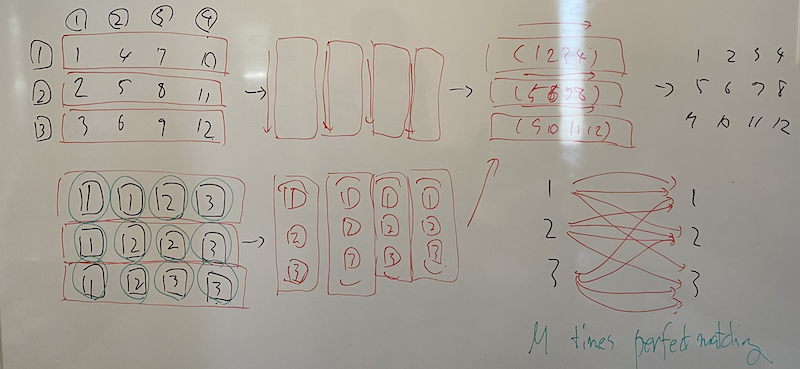 ① ② ③ ④
① 1 4 7 10
② 2 5 8 11
③ 3 6 9 12
(1 2 3 4)
(5 6 7 8)
(9 10 11 12)
1 2 3 4
5 6 7 8
9 10 11 12
1 1 2 3
1 2 2 3
1 2 3 3
① ① ① ①
② ② ② ②
③ ③ ③ ③
1 1
2 2
3 3
M times perfect matching